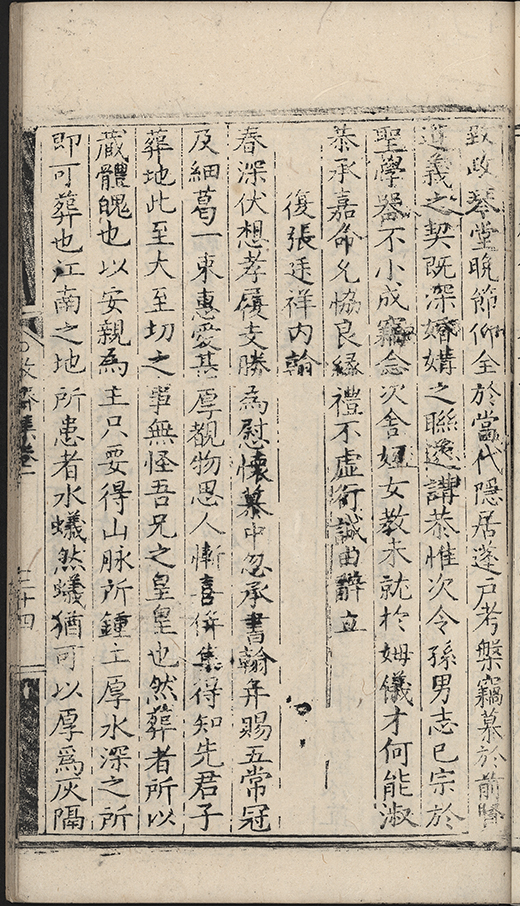 致政琴堂晚節仰全於當代隱居蓬戶考槃竊慕於前賢
道義之契既深婚媾之聯遂講恭惟次令孫男志已宗於
聖學器不小成竊念次舍姪女教未就於姆儀才何能淑
恭承嘉命允恊良緣禮不虛行誠由辭立
復張廷祥內翰
春深伏想孝履支勝為慰懷墓中忽承書翰并賜五常冠
及細葛一束惠愛甚厚覩物思人慚喜併集得知先君子
葬地此至大至切之事無怪吾兄之皇皇也然葬者所以
藏體魄也以安親為主只要得山脉所鍾土厚水深之所
即可葬也江南之地所患者水蟻然蟻猶可以厚為灰隔
集卷二
三十四